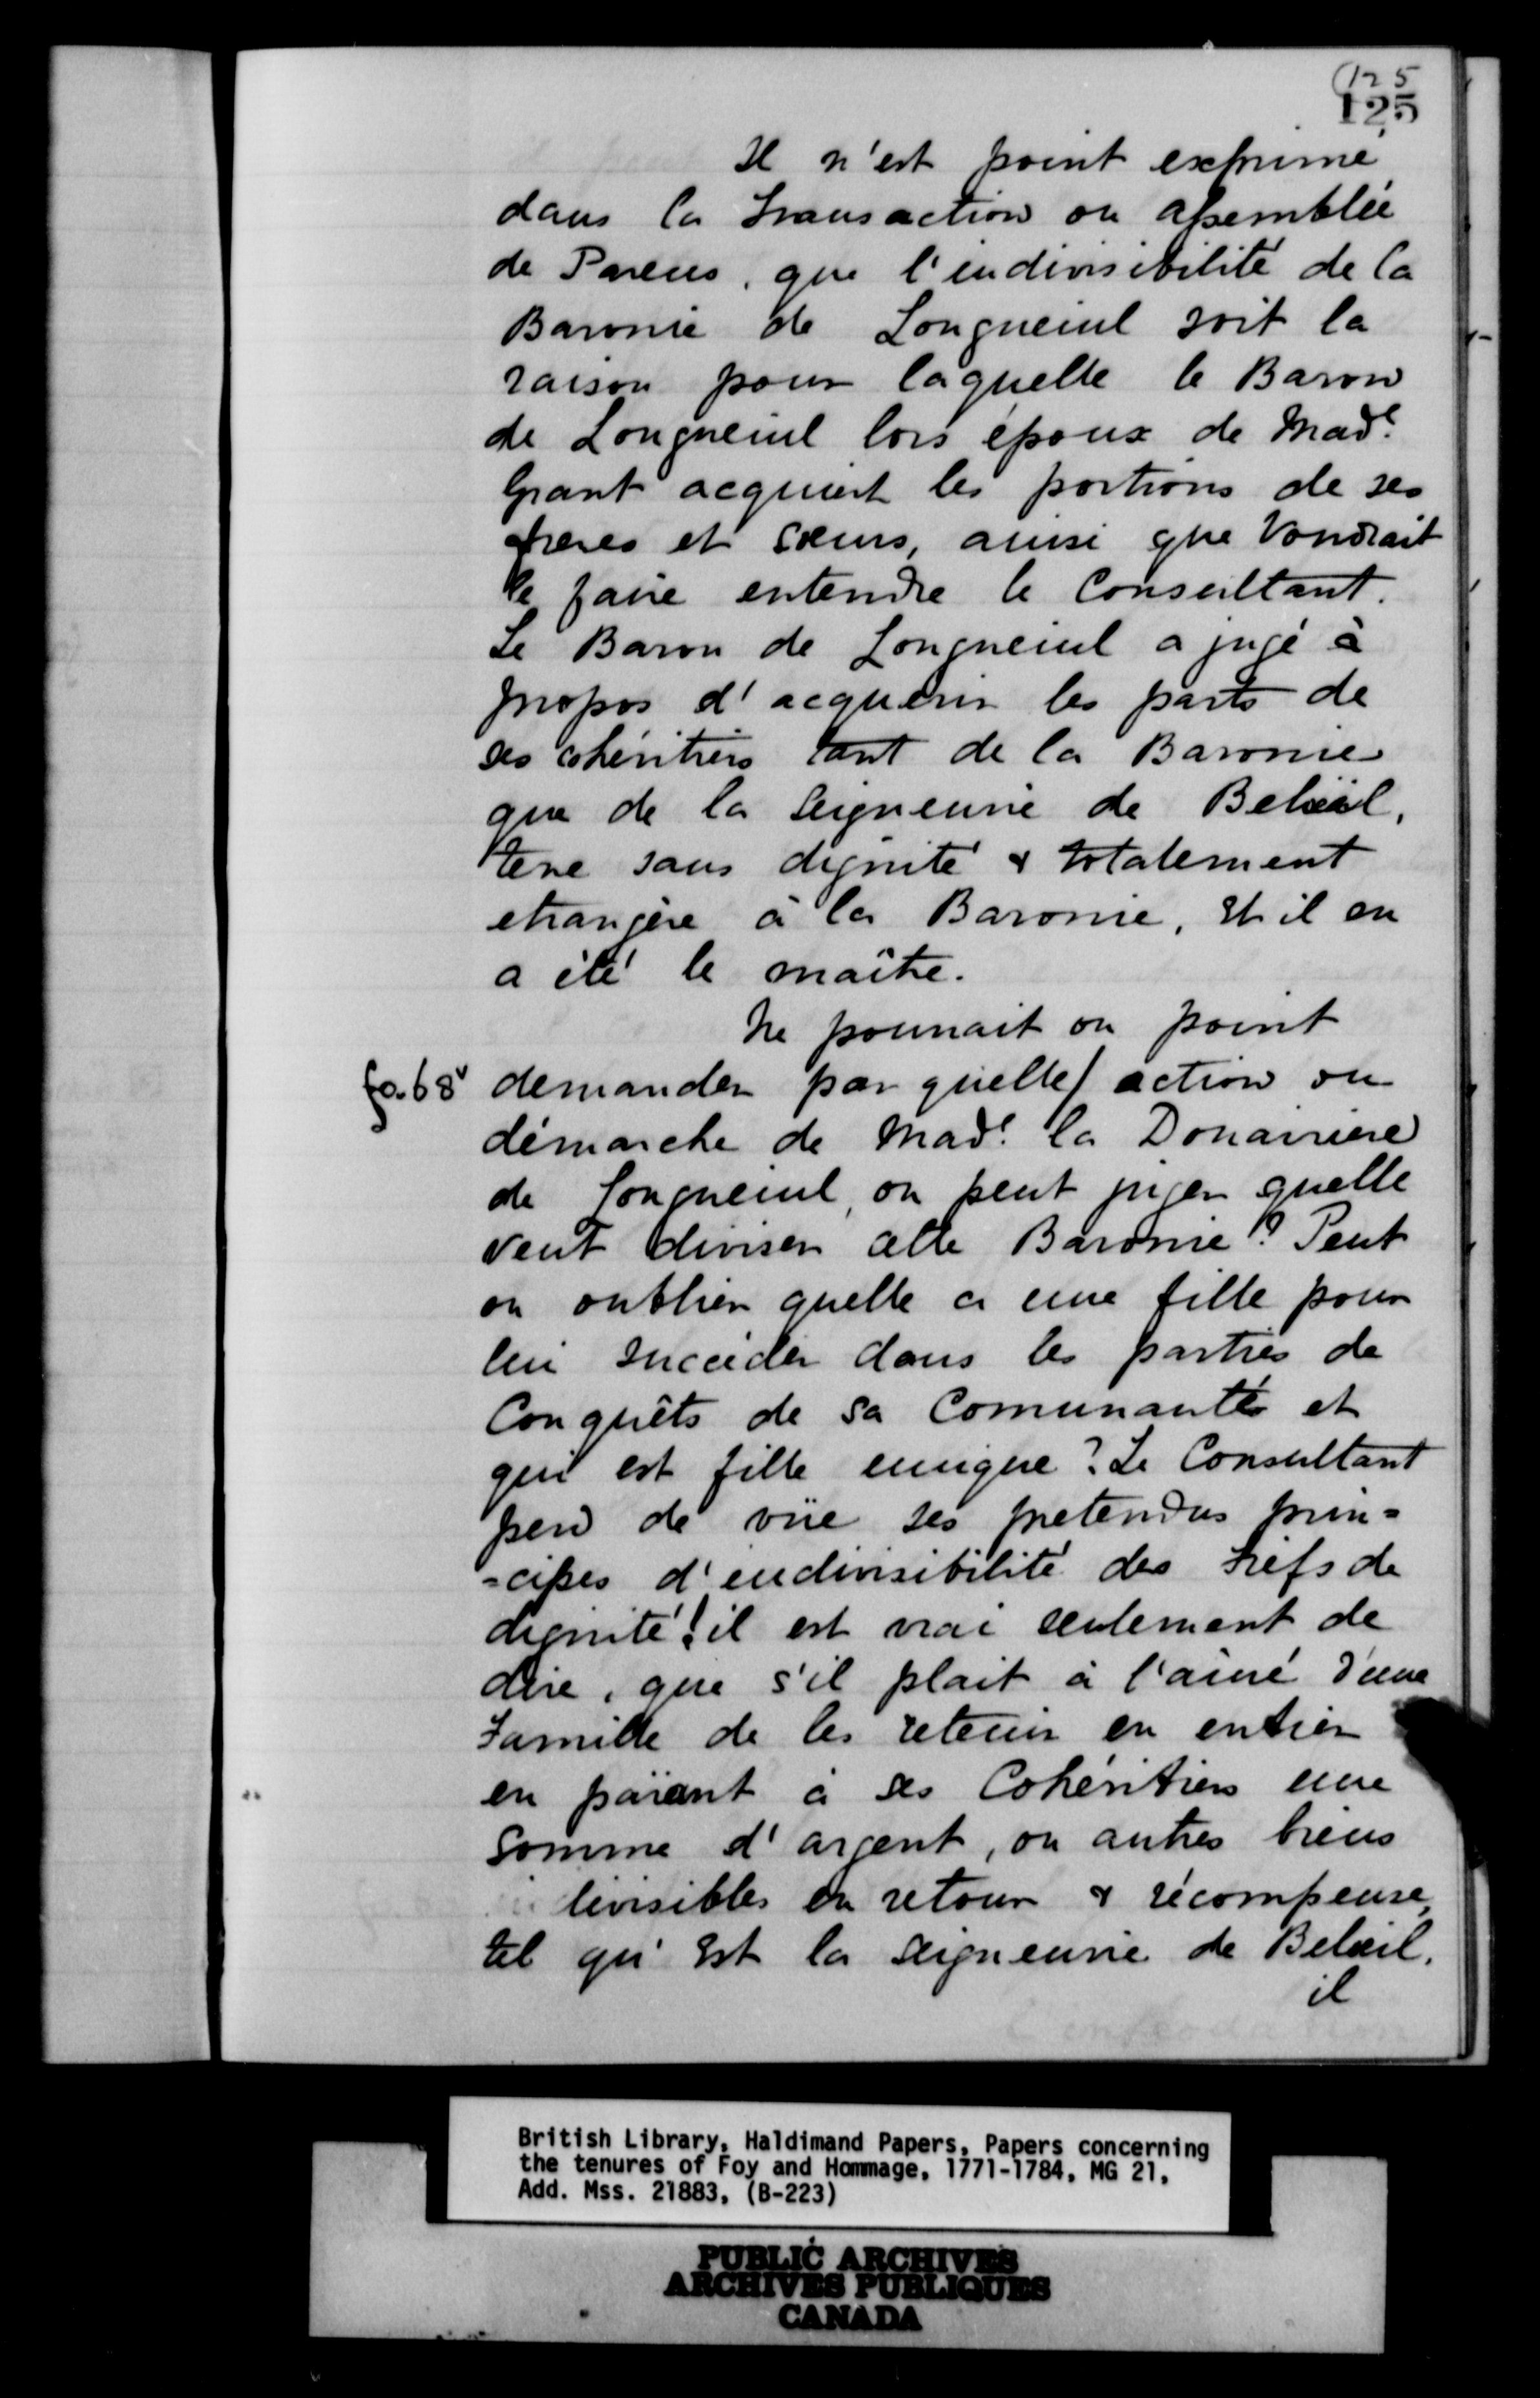 (125
125
Il n'est point exprimé
dans la transaction ou assemblée
de Parens, que l'indivisibilité de la
Baronie de Longueuil soit la
raison pour laquelle le Baron
de Longueuil lors époux de Made
Grant acquiert les portions de ses
freres et sœurs, ainsi que voudrait
le faire entendre le Consultant.
Le Baron de Longueuil a jugé à
propos d'acquerir les parts de
ses cohéritiers tant de la Baronie
que de la seigneurie de Belœil,
terre sans dignité & totalement
etrangère à la Baronie, Et il en
a été le maître.
Ne pourrait on point
fo. 68v demander par quelle/ action ou
démarche de Made la Douairiere
de Longueuil, on peut juger quelle
veut diviser cette Baronie? Peut
on oublier quelle a une fille pour
lui succéder dans les parties de
Conquêts de sa Comunauté et
qui est fille unique? Le Consultant
perd de vüe ses pretendus prin=
=cipes d'indivisibilité des fiefs de
dignité! il est vrai seulement de
dire, que s'il plait à l'ainé d'une
famille de les retenir en entier
en païant à ses Cohéritiers une
somme d'argent, ou autres biens
divisibles en retour & récompense,
tel qu'Est la seigneurie de Belœil.
il
British Library, Haldimand Papers, Papers concerning
the tenures of Foy and Hommage, 1771-1784, MG 21,
Add. Mss. 21883, (B-223)
PUBLIC ARCHIVES
ARCHIVES PUBLIQUES
CANADA